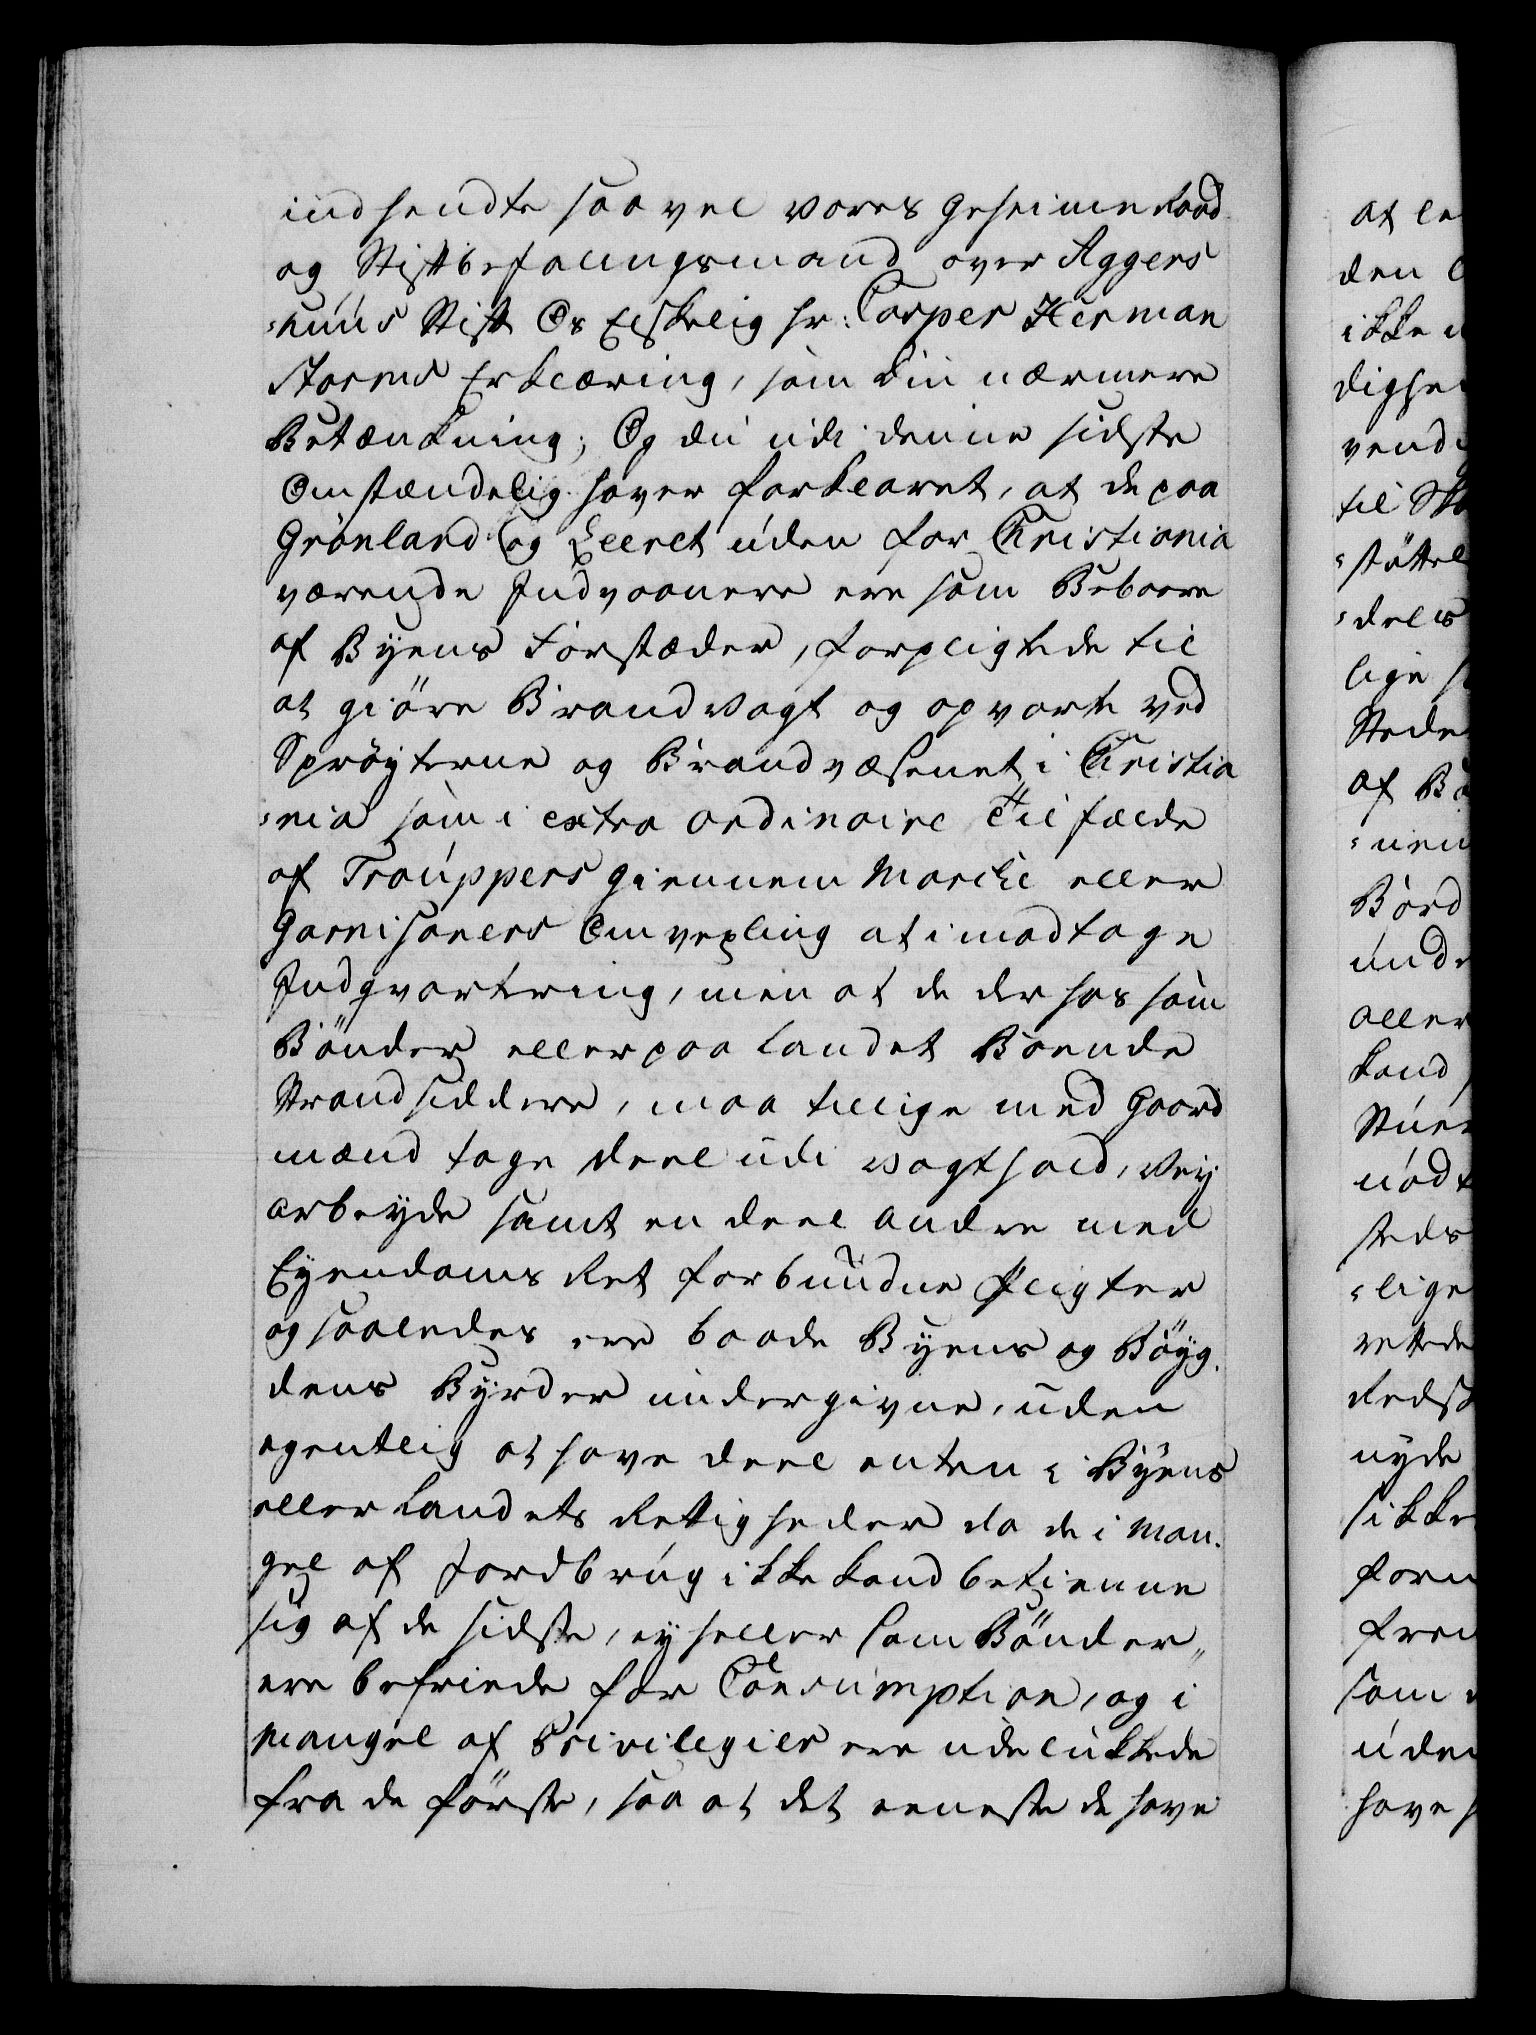 indsendte saavel vores Geheime Raad
og Stiftbefalingsmand over Aggers
huus Stift Os Elskelig Hr: Casper Herman
Storms Erklæring, som din nærmere
Betænkning; Og du udi denne sidste
Omstændelig haver forklaret, at de paa
Grönland og Leeret uden for Christiania
værende Indvaanere ere som Beboere
af Byens Forstæder, forpligtede til
at giöre Brandvagt og opvarte ved
Spröyterne og Brandvæsenet i Christia
nia som i extra ordinaire Tilfælde
af Trouppers Giennem Marche eller
Garnisoners Omvexling at imodtage
Indqvartering, men at de der hos som
Bönder eller paa Landet Boende
Strandsiddere, maa tillige med Gaard
mænd tage deel udi Vagthold, Vey
arbeyde samt en deel andre med
Eyendoms Ret forbundne Pligter
og saaledes ere baade Byens og Böyg
dens Byrder undergivne, uden
egentlig at have deel enten i Byens
eller Landets Rettigheder da de i Man
gel af Jordbrug ikke kand betienne
sig af de sidste, ey heller som Bönder
ere befriede for Consumption, og i
Mangel af Privilegier ere udelukkede
fra de förste, saa at det eeneste de have
at le
den
ikke
dighe
vend
til Sk
stöttel
dels
lige
Stede
af B
nen
Bord
unde
aller
Land
Stuer
nödt
steds
lige
rettede
Redsk
nyde
sikke
forn
frem
som
uden
have